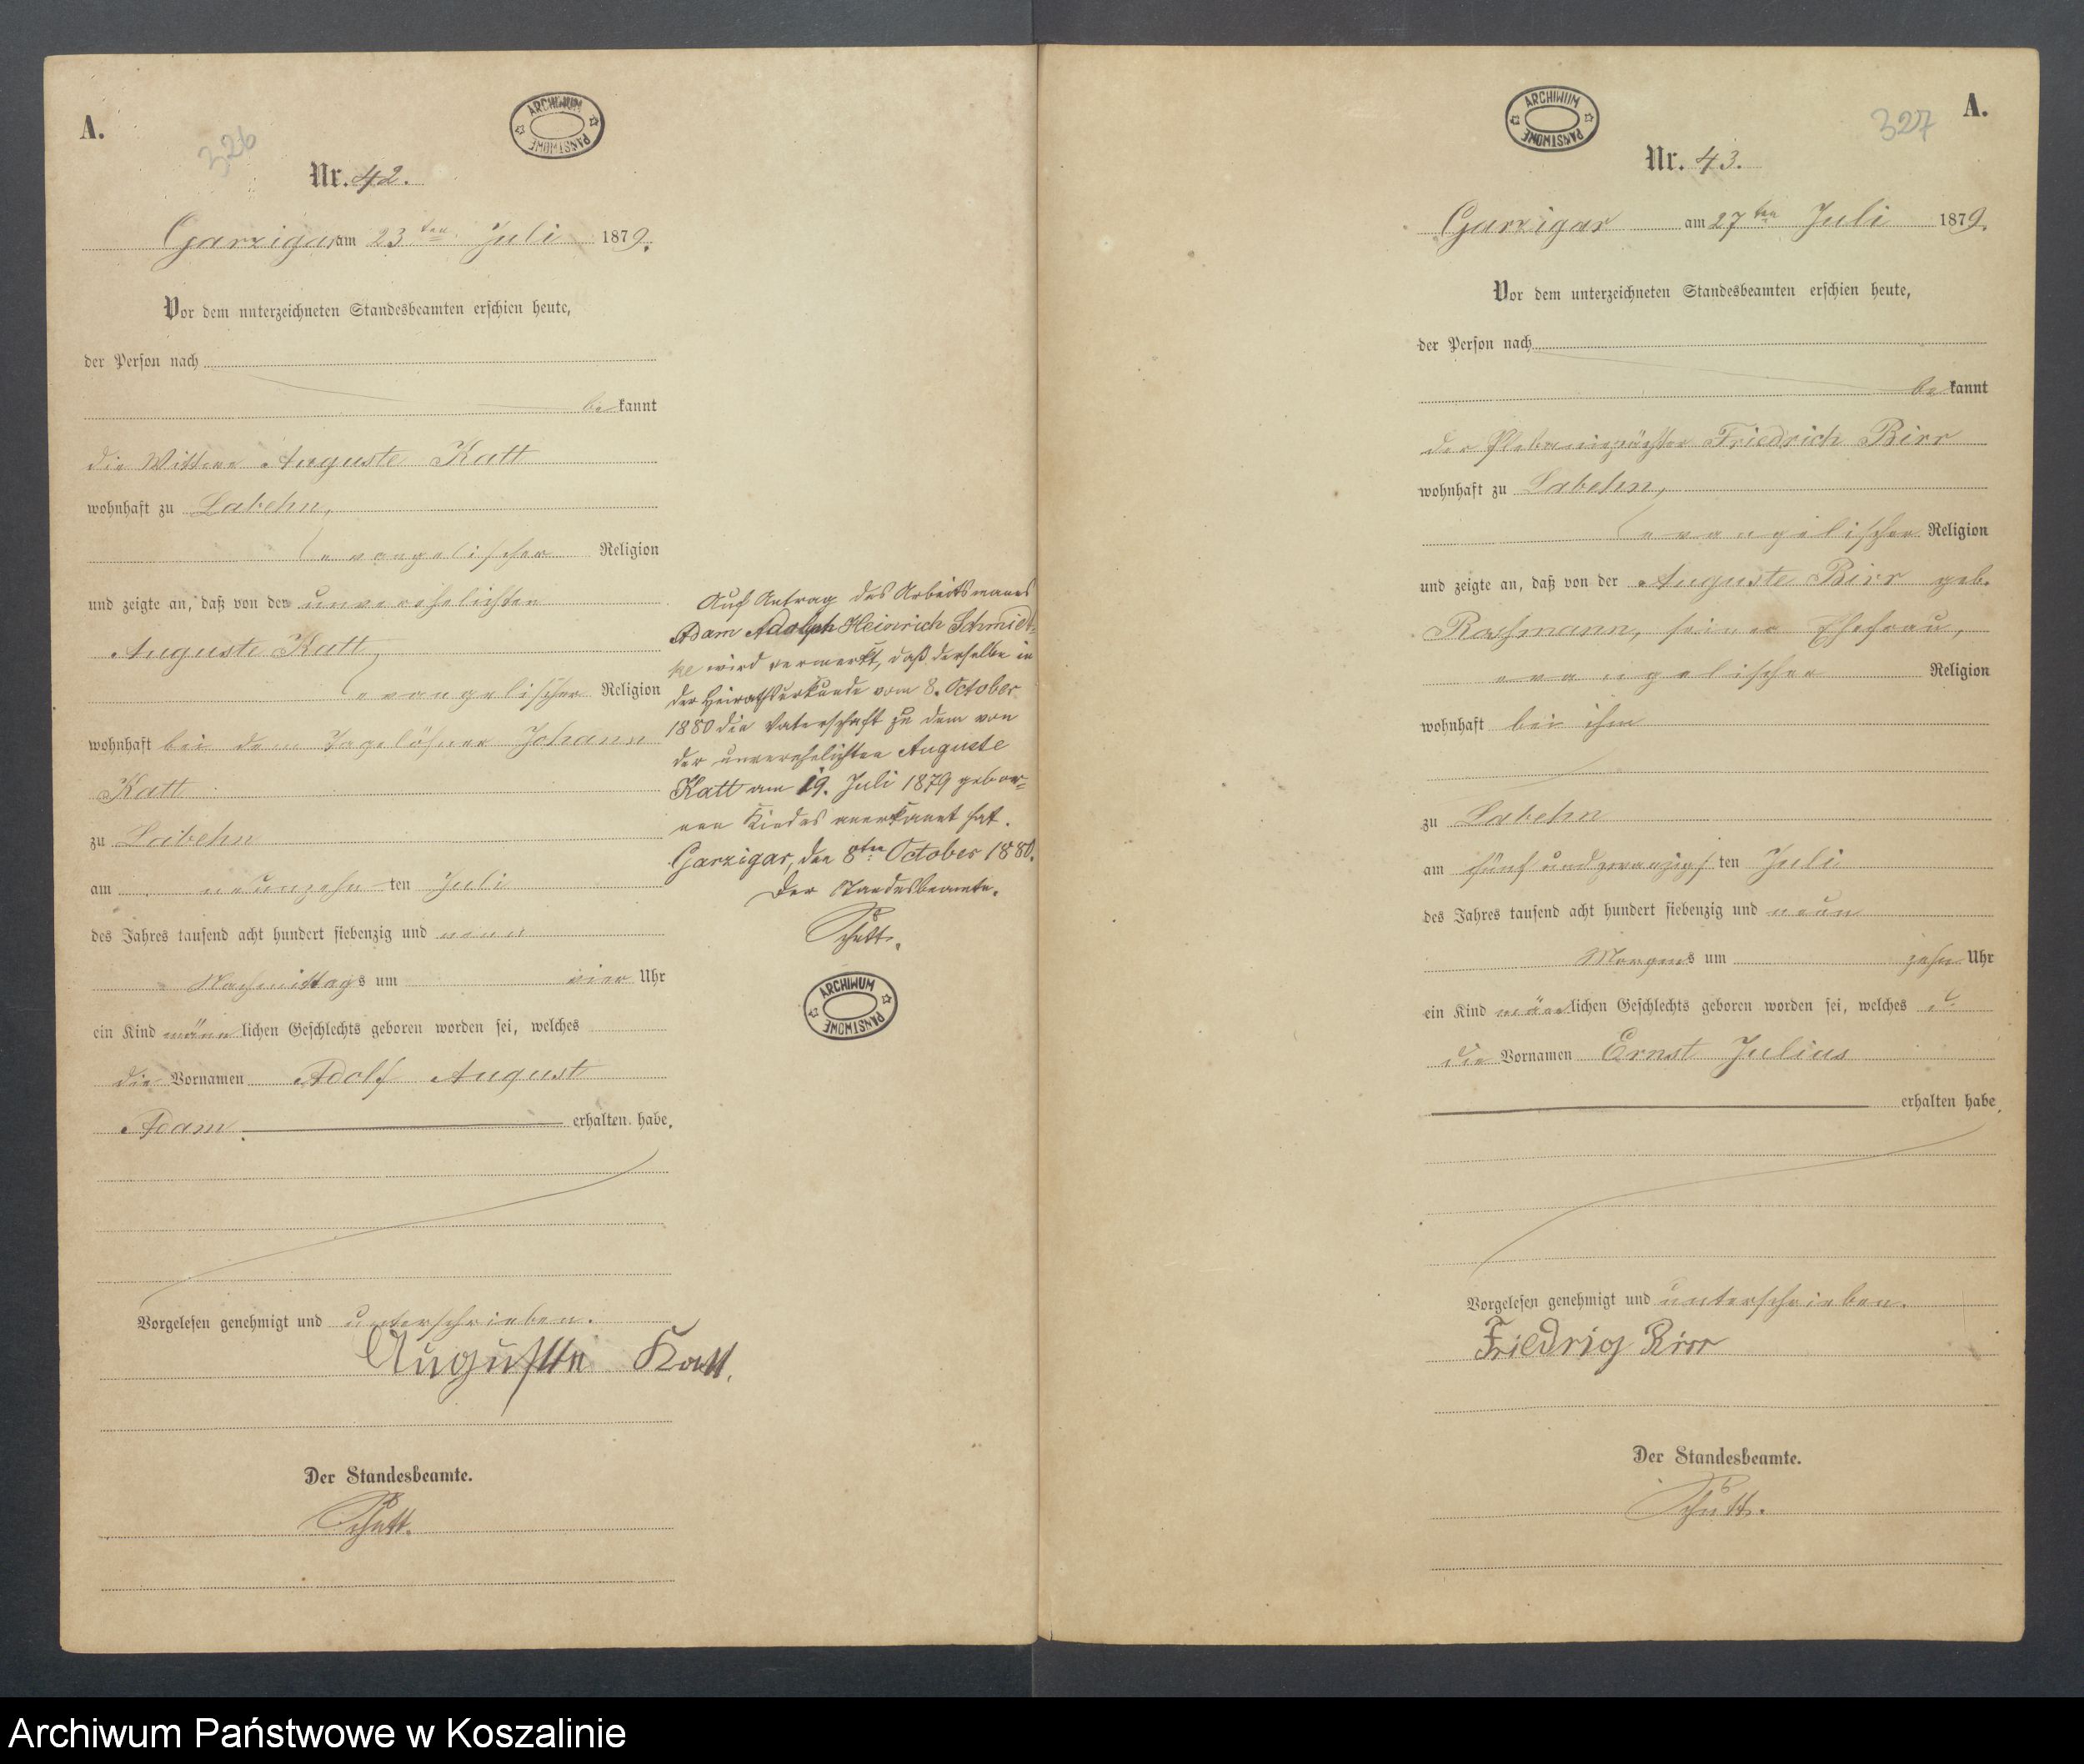 A.
326
ARCHIWUM PAŃSTWOWE
Nr. 42.
Garzigar am 23ten Juli 1879.
Vor dem unterzeichneten Standesbeamten erschien heute,
der Person nach
bekannt
die Wittwe Auguste Katt
wohnhaft zu Labehn,
evangelischer Religion
und zeigte an, daß von der unverehelichten
Auguste Katt,
evangelischer Religion
wohnhaft bei dem Tagelöhner Johann
Katt
zu Labehn
am neunzehnten Juli
des Jahres tausend acht hundert siebenzig und neun
Nachmittags um vier Uhr
ein Kind männlichen Geschlechts geboren worden sei, welches
die Vornamen Adolf August
Adam erhalten habe.
Vorgelesen genehmigt und unterschrieben.
Auguste Katt.
Der Standesbeamte.
Schütt.
Auf Antrag des Arbeitsmannes
Adam Adolph Heinrich Schmidt-
ke wird vermerkt, daß derselbe in
der Heirathsurkunde vom 8. October
1880 die Vaterschaft zu dem von
der unverehelichten Auguste
Katt am 19. Juli 1879 gebor-
nen Kindes anerkannt hat.
Garzigar, den 8ten October 1880.
Der Standesbeamte.
Schütt.
ARCHIWUM PAŃSTWOWE
ARCHIWUM PAŃSTWOWE
327
A.
Nr. 43.
Garzigar am 27ten Juli 1879.
Vor dem unterzeichneten Standesbeamten erschien heute,
der Person nach
bekannt
der Friedrich Birr
wohnhaft zu Labehn,
evangelischer Religion
und zeigte an, daß von der Auguste Birr geb.
Raschmann, seiner Ehefrau,
evangelischer Religion
wohnhaft bei ihm
zu Labehn
am fünf und zwanzigsten Juli
des Jahres tausend acht hundert siebenzig und neun
Morgens um zehn Uhr
ein Kind männlichen Geschlechts geboren worden sei, welches
die Vornamen Ernst Julius
erhalten habe.
Vorgelesen genehmigt und unterschrieben.
Friedrig Birr
Der Standesbeamte.
Schütt.
Archiwum Państwowe w Koszalinie